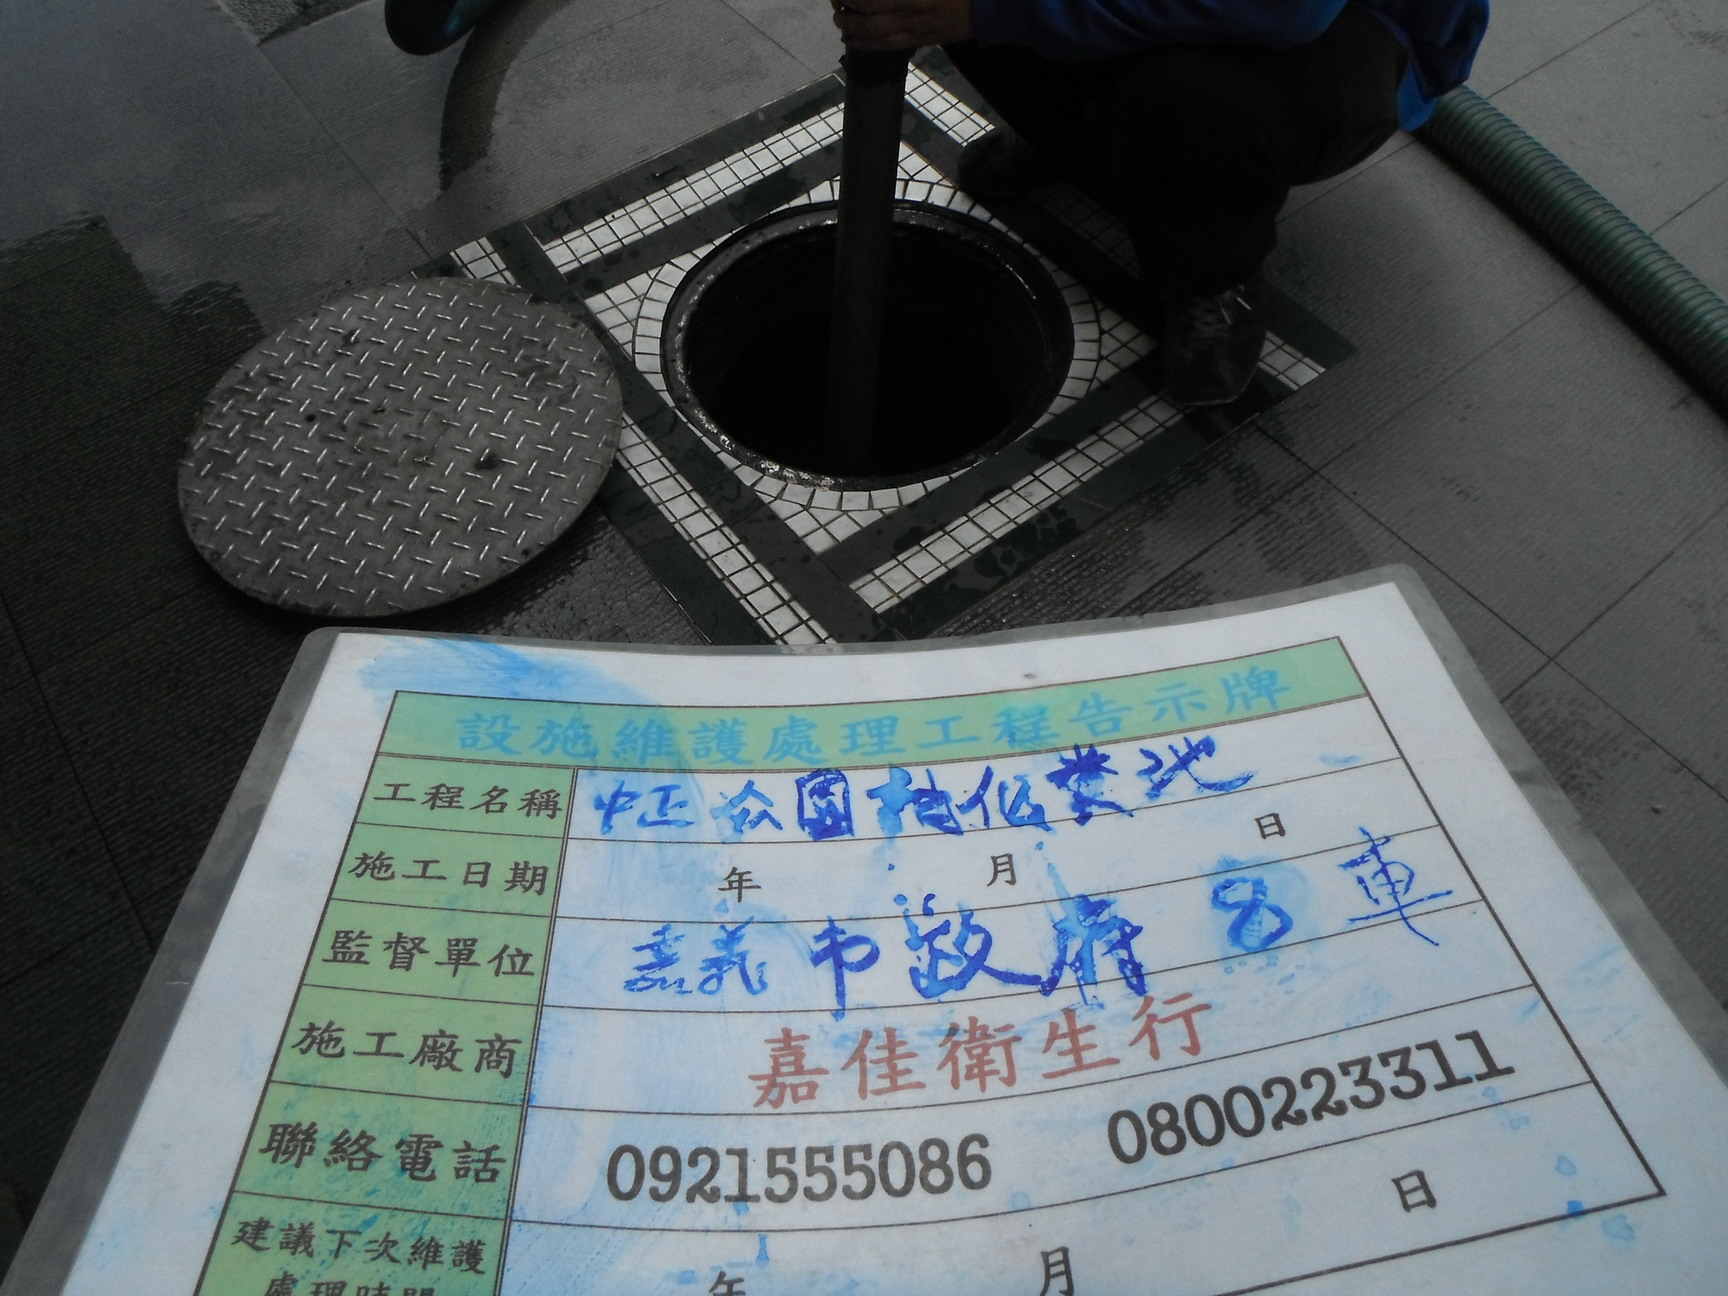 設施維護處理工程告示牌
工程名稱 中正公園抽化糞池
施工日期 年 月 日
監督單位 嘉義市政府 8車
施工廠商 嘉佳衛生行
聯絡電話 0921555086 0800223311
建議下次維護 年 月 日
處理時間